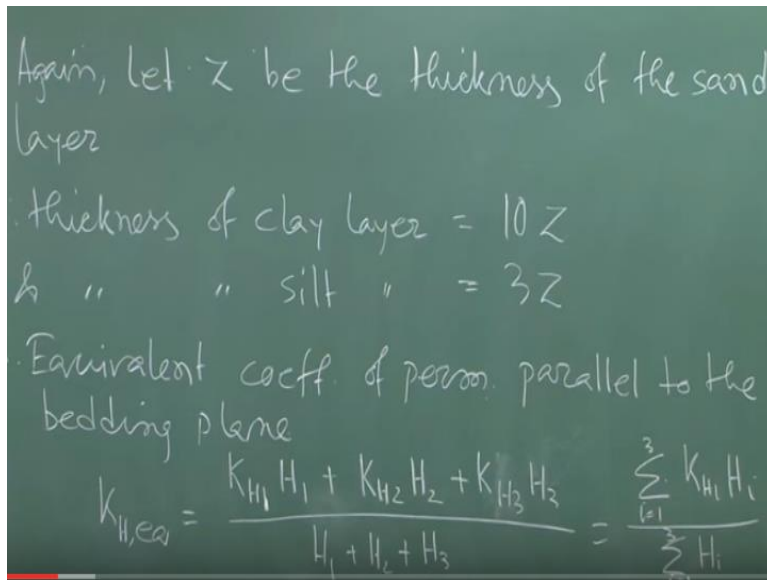 Again, let z be the thickness of the sand
layer
thickness of clay layer = 10 z
& " " silt " = 3z
Equivalent coeff. of perm. parallel to the
bedding plane
K_{H,eq} = \frac{K_{H1} H_1 + K_{H2} H_2 + K_{H3} H_3}{H_1 + H_2 + H_3} = \frac{\sum_{i=1}^{3} K_{Hi} H_i}{\sum^{3} H_i}